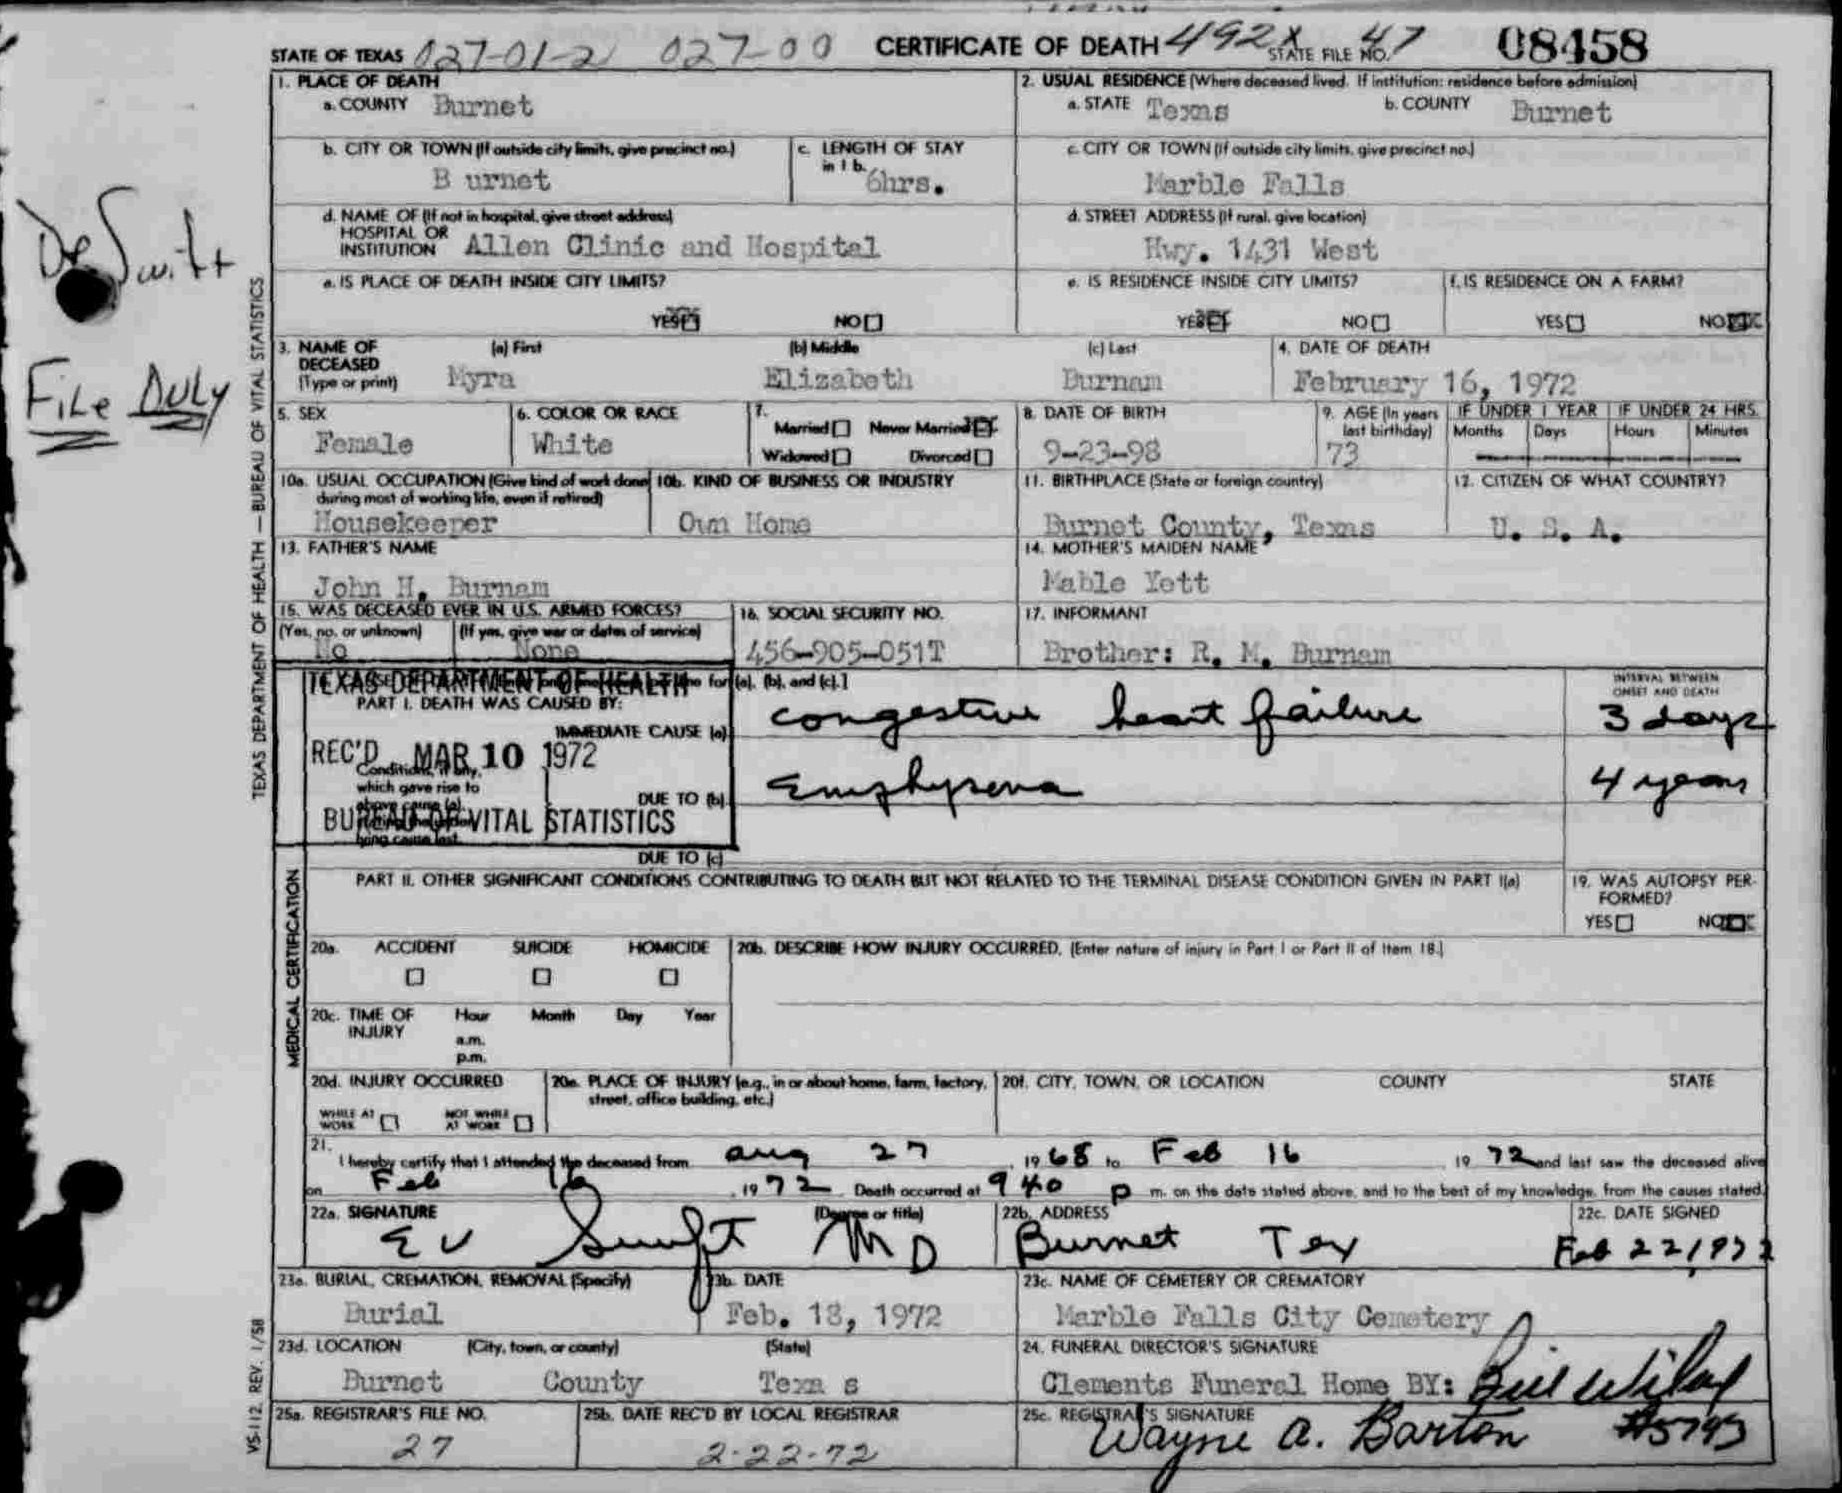 STATE OF TEXAS 027-01-2 027-00 CERTIFICATE OF DEATH 492X STATE FILE NO. 47 08458
1. PLACE OF DEATH
a. COUNTY Burnet
2. USUAL RESIDENCE (Where deceased lived. If institution: residence before admission)
a. STATE Texas b. COUNTY Burnet
b. CITY OR TOWN (If outside city limits, give precinct no.)
B urnet
c. LENGTH OF STAY
in 1 b. 6hrs.
c. CITY OR TOWN (If outside city limits, give precinct no.)
Marble Falls
d. NAME OF (If not in hospital, give street address)
HOSPITAL OR
INSTITUTION Allen Clinic and Hospital
d. STREET ADDRESS (If rural, give location)
Hwy. 1431 West
De Swift
File DULY
e. IS PLACE OF DEATH INSIDE CITY LIMITS?
YES NO
e. IS RESIDENCE INSIDE CITY LIMITS?
YES NO
f. IS RESIDENCE ON A FARM?
YES NO
3. NAME OF DECEASED (Type or print)
(a) First (b) Middle (c) Last
Myra Elizabeth Burnam
4. DATE OF DEATH
February 16, 1972
5. SEX
Female
6. COLOR OR RACE
White
7.
Married Never Married
Widowed Divorced
8. DATE OF BIRTH
9-23-98
9. AGE (In years
last birthday)
73
IF UNDER 1 YEAR IF UNDER 24 HRS.
Months Days Hours Minutes
10a. USUAL OCCUPATION (Give kind of work done
during most of working life, even if retired)
Housekeeper
10b. KIND OF BUSINESS OR INDUSTRY
Own Home
11. BIRTHPLACE (State or foreign country)
Burnet County, Texas
12. CITIZEN OF WHAT COUNTRY?
U. S. A.
13. FATHER'S NAME
John H. Burnam
14. MOTHER'S MAIDEN NAME
Mable Yett
15. WAS DECEASED EVER IN U.S. ARMED FORCES?
(Yes, no, or unknown) (If yes, give war or dates of service)
No None
16. SOCIAL SECURITY NO.
456-905-051T
17. INFORMANT
Brother: R. M. Burnam
TEXAS DEPARTMENT OF HEALTH
REC'D MAR 10 1972
BUREAU OF VITAL STATISTICS
line for (a), (b), and (c).]
PART I. DEATH WAS CAUSED BY:
IMMEDIATE CAUSE (a) congestive heart failure
INTERVAL BETWEEN
ONSET AND DEATH
3 days
Conditions, if any,
which gave rise to
above cause (a)
DUE TO (b) Emphysema 4 years
DUE TO (c)
PART II. OTHER SIGNIFICANT CONDITIONS CONTRIBUTING TO DEATH BUT NOT RELATED TO THE TERMINAL DISEASE CONDITION GIVEN IN PART I(a)
19. WAS AUTOPSY PER-
FORMED?
YES NO
20a. ACCIDENT SUICIDE HOMICIDE
20b. DESCRIBE HOW INJURY OCCURRED. (Enter nature of injury in Part I or Part II of Item 18.)
20c. TIME OF INJURY
Hour Month Day Year
a.m.
p.m.
20d. INJURY OCCURRED
WHILE AT WORK NOT WHILE AT WORK
20e. PLACE OF INJURY (e.g., in or about home, farm, factory,
street, office building, etc.)
20f. CITY, TOWN, OR LOCATION COUNTY STATE
21.
I hereby certify that I attended the deceased from Aug 27, 1968 to Feb 16 1972 and last saw the deceased alive
on Feb 16, 1972. Death occurred at 9 40 p m. on the date stated above, and to the best of my knowledge, from the causes stated.
22a. SIGNATURE (Degree or title)
E V Swift MD
22b. ADDRESS
Burnet Tex
22c. DATE SIGNED
Feb 22, 1972
23a. BURIAL, CREMATION, REMOVAL (Specify)
Burial
23b. DATE
Feb. 18, 1972
23c. NAME OF CEMETERY OR CREMATORY
Marble Falls City Cemetery
23d. LOCATION (City, town, or county) (State)
Burnet County Texa s
24. FUNERAL DIRECTOR'S SIGNATURE
Clements Funeral Home BY: Bill
25a. REGISTRAR'S FILE NO.
27
25b. DATE REC'D BY LOCAL REGISTRAR
2-22-72
25c. REGISTRAR'S SIGNATURE
Wayne A. Barton #5793
TEXAS DEPARTMENT OF HEALTH — BUREAU OF VITAL STATISTICS
MEDICAL CERTIFICATION
VS-112, REV. 1/58